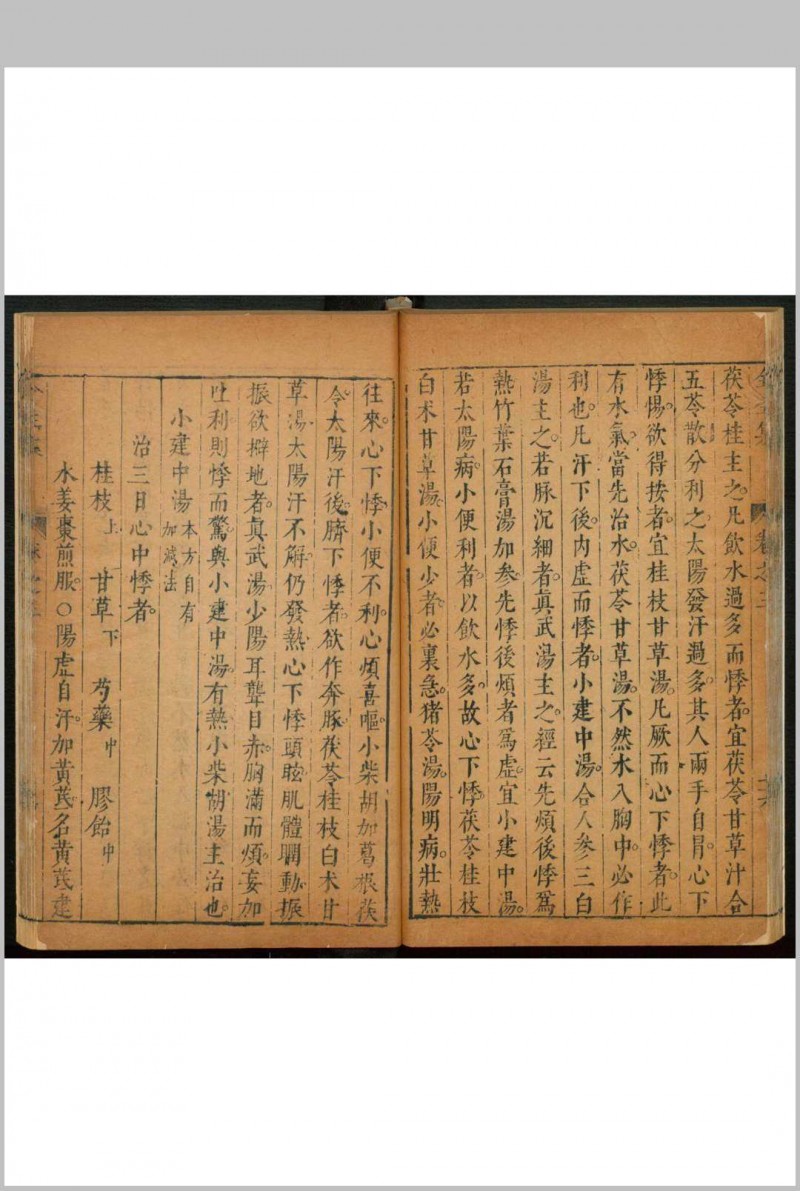 茯苓桂主之。凡飲水過多而悸者。宜茯苓甘草汁合
五苓散分利之。太陽發汗過多。其人兩手自冐。心下
悸惕。欲得按者。宜桂枝甘草湯。凡厥而心下悸者。此
有水氣。當先治水。茯苓甘草湯。不然水入胸中。必作
利也。凡汗下後。內虛而悸者。小建中湯。合人參三白
湯主之。若脉沉細者。眞武湯主之。經云先煩後悸爲
熱。竹葉石膏湯加參。先悸後煩者爲虛。宜小建中湯。
若太陽病。小便利者。以飲水多。故心下悸。茯苓桂枝
白术甘草湯。小便少者。必裏急。猪苓湯。陽明病。壯熱
往來。心下悸。小便不利。心煩喜嘔。小柴胡加葛根茯
苓。太陽汗後。臍下悸者。欲作奔豚。茯苓桂枝白术甘
草湯。太陽汗不解。仍發熱。心下悸。頭眩。肌體瞤動。振
振欲擗地者。眞武湯。少陽耳聾目赤。胸滿而煩。妄加
吐利。則悸而驚。與小建中湯。有熱小柴胡湯主治也。
小建中湯 本方自有
加減法
治三日心中悸者。
桂枝上 甘草下 芍藥中 膠飴中
水姜棗煎服。○陽虛自汗。加黃芪。名黃芪建